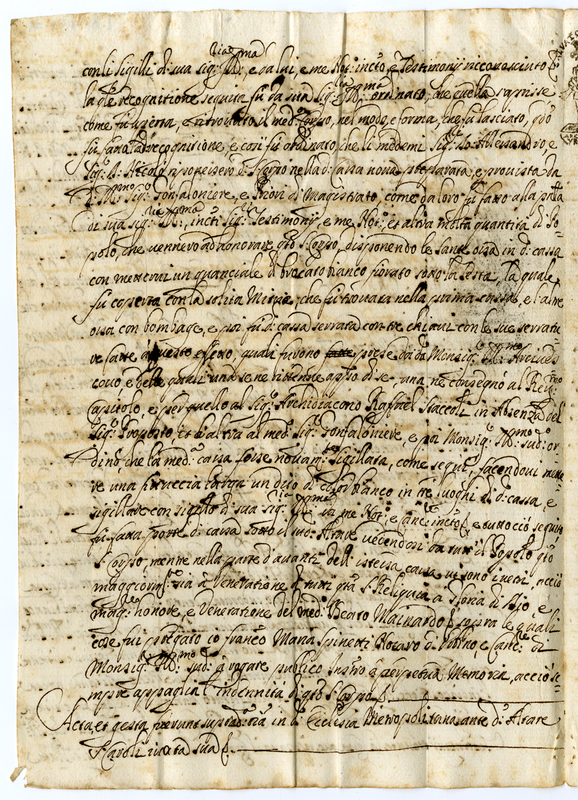 con li sigilli di sua Sig.ria Ill.ma, e da lui, e me Not.o infr.o, e Testimonij riconosciuto
la q.le recognitione seguita fu da sua Sig.ria Ill.ma ordinato, che quella s'aprisse
come fu aperta, e ritrovato il med.o Corpo, nel modo, e forma, che fu lasciato,
fu fatta la recognitione, e così fu ordinato che li medemi Sig.ri Alessandro, e
Sig.r Nicolò riponessero il legno nella d.a Cassa nova preparata, e provista da
Sig.r Gonfaloniere, e Priori di Magistrato, come da loro fu fatto alla pnza
di sua Sig.ria Ill.ma, infr.i Sig.ri Testimonij, e me Not.o et altra molta quantità di Po=
polo, che vennero ad honorare q.to S. Corpo, disponendo le sante ossa in d.a cassa
con mettervi un guanciale di broccato bianco fiorato sotto la testa, la quale
fu coperta con la solita Mitria, che fu trovata nella prima cassa, e l'altre
ossa con bombage, e poi fu d.a cassa serrata con tre chiavi con le sue serrature
fatte a questo effetto, quali furono prese da d.o Monsig.r Ill.mo Arcives=
covo e delle quali una se ne ritenne app.o di se, una ne consegnò al Rev.mo
Capitolo, e per quello al Sig.r Archidiacono Raffael Staccoli in Absenza del
Sig.r Proposto, et l'altra al med.o Sig.r Gonfaloniere, e poi Monsig.r Ill.mo sud.o or
dinò che la med.a cassa fosse novam.te sigillata, come seguì, facendovi mette
re una fittuccia larga un dito di color bianco in tre luoghi di d.a cassa, e
sigillare con sigillo di sua Sig.ria Ill.ma da me Not.o, e Canc.re infr.o, e tutto ciò seguito
fu fatta porre d.a cassa sotto il sud.o Altare vedendosi da tutto il Popolo q.to
S. Corpo, mentre nella parte d'avanti dell'istessa cassa vi sono i vetri, acciò
maggiorm.te sia a Veneratione di tutti q.ta S. Reliquia a gloria di Dio, e
magg.re honore, e Veneratione del med.o Beato Mainardo sopra le quali
cose fui pregato io Franc.o Maria Spinetti Notaro d'Urbino e Canc.re di
Monsig.r Ill.mo sud.o a rogare publico Instro a perpetua Memoria, acciò se=
mpre appaglia l'indennità di q.to S. Corpo
Acta et gesta fuerunt supradicta in d.a Ecclesia Metropolitana ante d.o Altare
S. Caroli iuxta sua